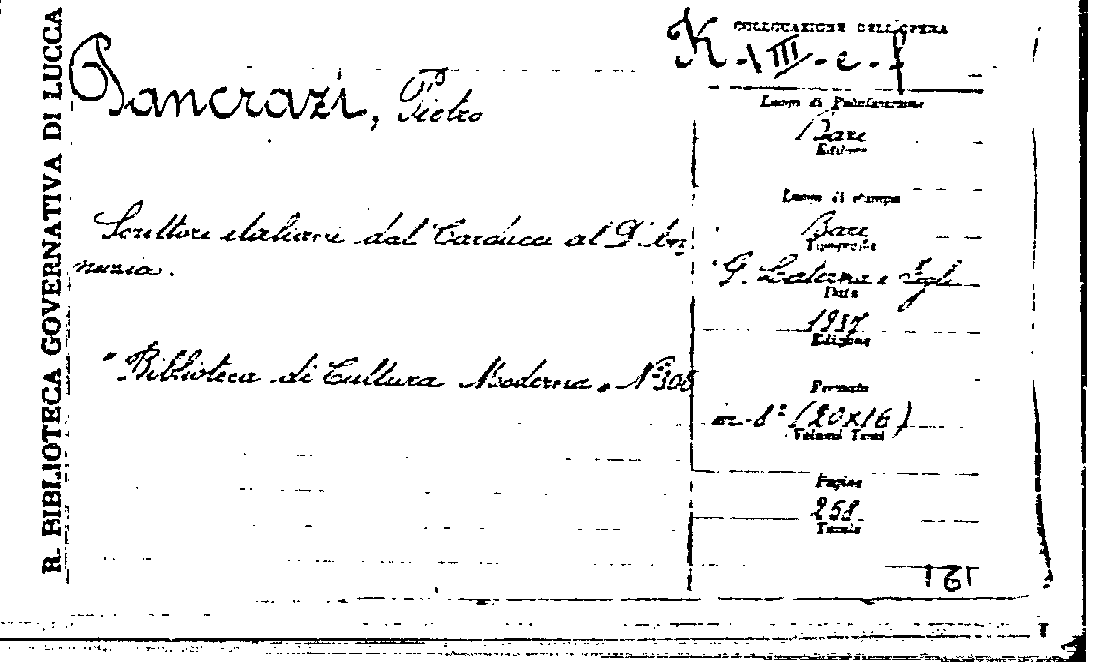 R. BIBLIOTECA GOVERNATIVA DI LUCCA
COLLOCAZIONE DELL'OPERA
K-VIII-e-f
Pancrazi, Pietro
Luogo di Pubblicazione
Bari
Editore
Luogo di stampa
Scrittori italiani dal Carducci al D'An
Bari
Tipografia
nunzio.
G. Laterza e Figli
Data
1937
Edizione
"Biblioteca di Cultura Moderna" N°
Formato
in-8° (20x16)
Volumi Tomi
Pagine
258
Tavole